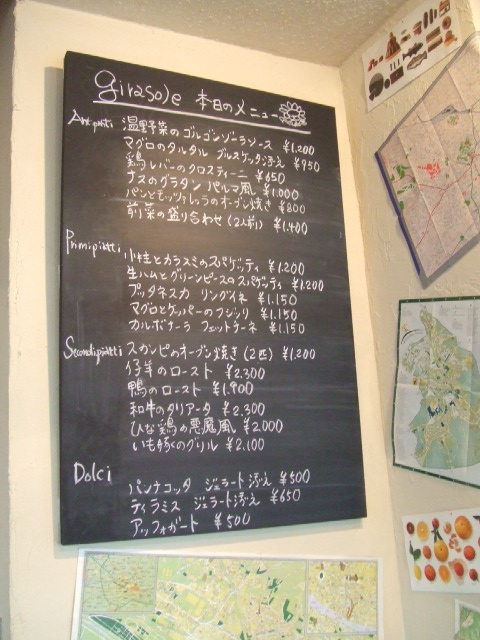 girasole 本日のメニュー
Antipasti 温野菜のゴルゴンゾーラソース ¥1.200
マグロのタルタル ブルスケッタ添え ¥950
鶏レバーのクロスティーニ ¥650
ナスのグラタン パルマ風 ¥1.000
パンとモッツァレッラのオーブン焼き ¥800
前菜の盛り合わせ(2人前) ¥1.400
Primipiatti 小柱とカラスミのスパゲッティ ¥1.200
生ハムとグリーンピースのスパゲッティ ¥1.200
プッタネスカ リングイネ ¥1.150
マグロとケッパーのフジッリ ¥1.150
カルボナーラ フェットチーネ ¥1.150
Secondipiatti スカンピのオーブン焼き(2匹) ¥1.200
仔羊のロースト ¥2.300
鴨のロースト ¥1.900
和牛のタリアータ ¥2.300
ひな鶏の悪魔風 ¥2.000
いも豚のグリル ¥2.100
Dolci パンナコッタ ジェラート添え ¥500
ティラミス ジェラート添え ¥650
アッフォガート ¥500